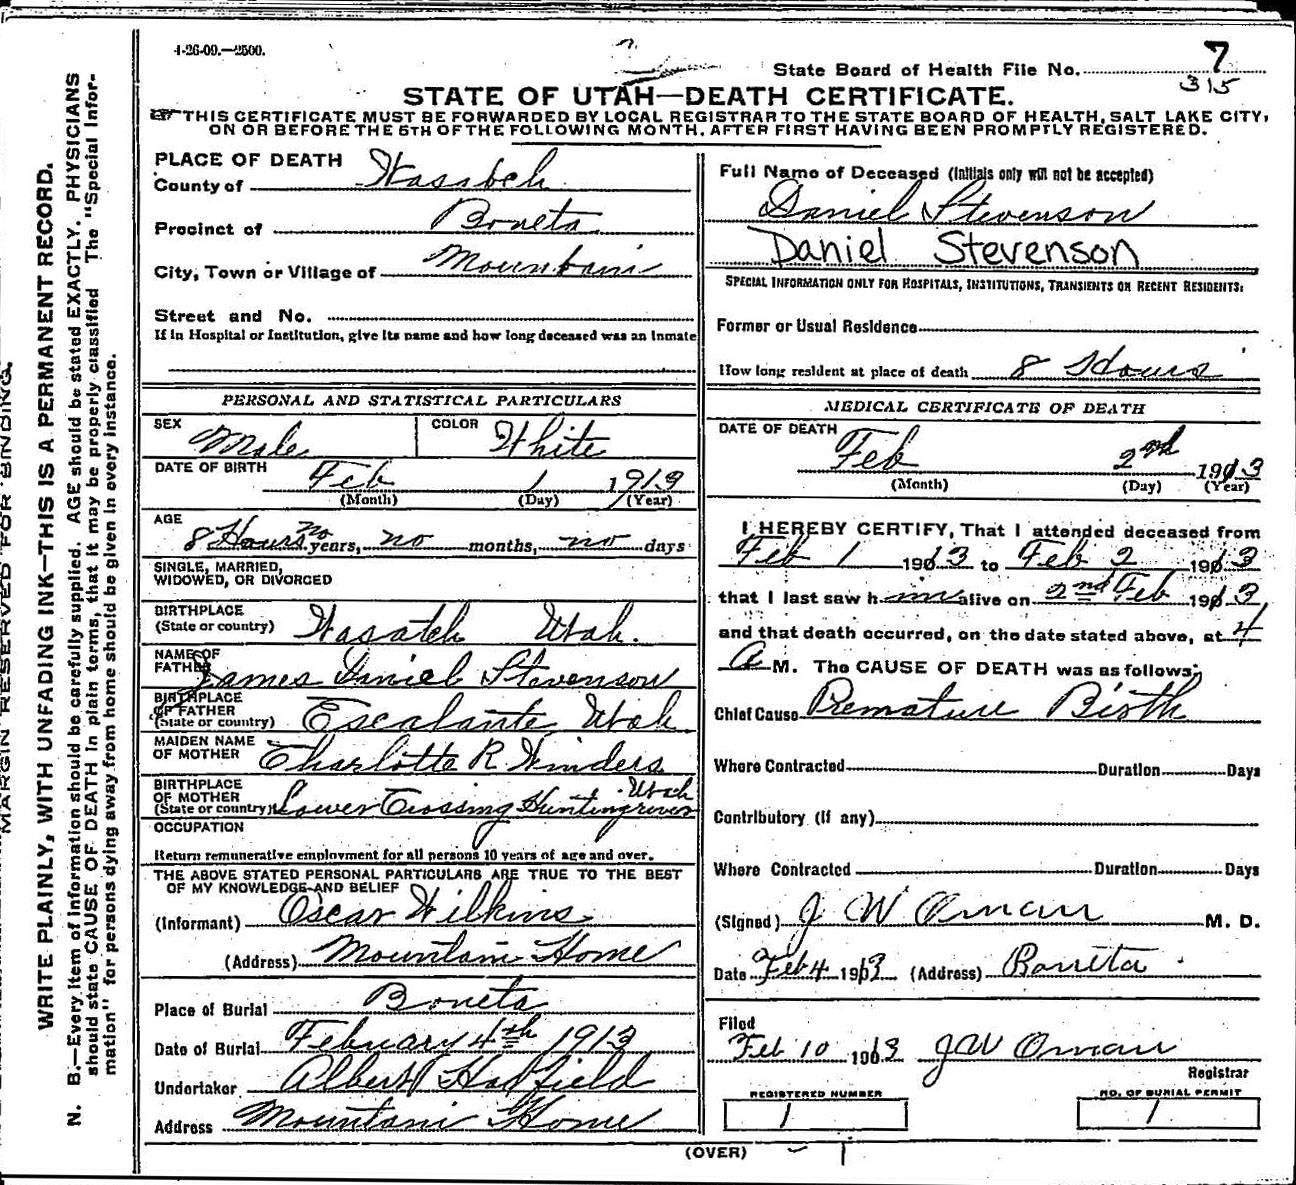 1-26-09.—2500.
State Board of Health File No. 7
315
STATE OF UTAH—DEATH CERTIFICATE.
THIS CERTIFICATE MUST BE FORWARDED BY LOCAL REGISTRAR TO THE STATE BOARD OF HEALTH, SALT LAKE CITY,
ON OR BEFORE THE 5TH OF THE FOLLOWING MONTH, AFTER FIRST HAVING BEEN PROMPTLY REGISTERED.
PLACE OF DEATH
County of Wasatch
Precinct of Boneta
City, Town or Village of Mountain
Street and No.
If in Hospital or Institution, give its name and how long deceased was an inmate
PERSONAL AND STATISTICAL PARTICULARS
SEX Male COLOR White
DATE OF BIRTH Feb 1 1913
(Month) (Day) (Year)
AGE
8 Hours no years, no months, no days
SINGLE, MARRIED,
WIDOWED, OR DIVORCED
BIRTHPLACE
(State or country) Wasatch Utah.
NAME OF
FATHER James Daniel Stevenson
BIRTHPLACE
OF FATHER
(State or country) Escalante Utah
MAIDEN NAME
OF MOTHER Charlotte R Winders
BIRTHPLACE
OF MOTHER Utah
(State or country) Lower Crossing Huntingriver
OCCUPATION
Return remunerative employment for all persons 10 years of age and over.
THE ABOVE STATED PERSONAL PARTICULARS ARE TRUE TO THE BEST
OF MY KNOWLEDGE AND BELIEF
(Informant) Oscar Wilkins
(Address) Mountain Home
Place of Burial Boneta
Date of Burial February 4th 1913
Undertaker Albert Hadfield
Address Mountain Home
Full Name of Deceased (Initials only will not be accepted)
Daniel Stevenson
Daniel Stevenson
SPECIAL INFORMATION ONLY FOR HOSPITALS, INSTITUTIONS, TRANSIENTS OR RECENT RESIDENTS:
Former or Usual Residence
How long resident at place of death 8 Hours
MEDICAL CERTIFICATE OF DEATH
DATE OF DEATH
Feb 2nd 1913
(Month) (Day) (Year)
I HEREBY CERTIFY, That I attended deceased from
Feb 1 1913 to Feb 2 1913
that I last saw h im alive on 2nd Feb 1913
and that death occurred, on the date stated above, at 4
A M. The CAUSE OF DEATH was as follows:
Chief Cause Premature Birth
Where Contracted Duration Days
Contributory (if any)
Where Contracted Duration Days
(Signed) J W Oman M. D.
Date Feb 4 1913 (Address) Boneta
Filed
Feb 10 1913 J W Oman
Registrar
REGISTERED NUMBER
1
NO. OF BURIAL PERMIT
1
(OVER)
MARGIN RESERVED FOR BINDING.
WRITE PLAINLY, WITH UNFADING INK—THIS IS A PERMANENT RECORD.
N. B.—Every item of information should be carefully supplied. AGE should be stated EXACTLY. PHYSICIANS
should state CAUSE OF DEATH in plain terms, that it may be properly classified The "Special Infor-
mation" for persons dying away from home should be given in every instance.